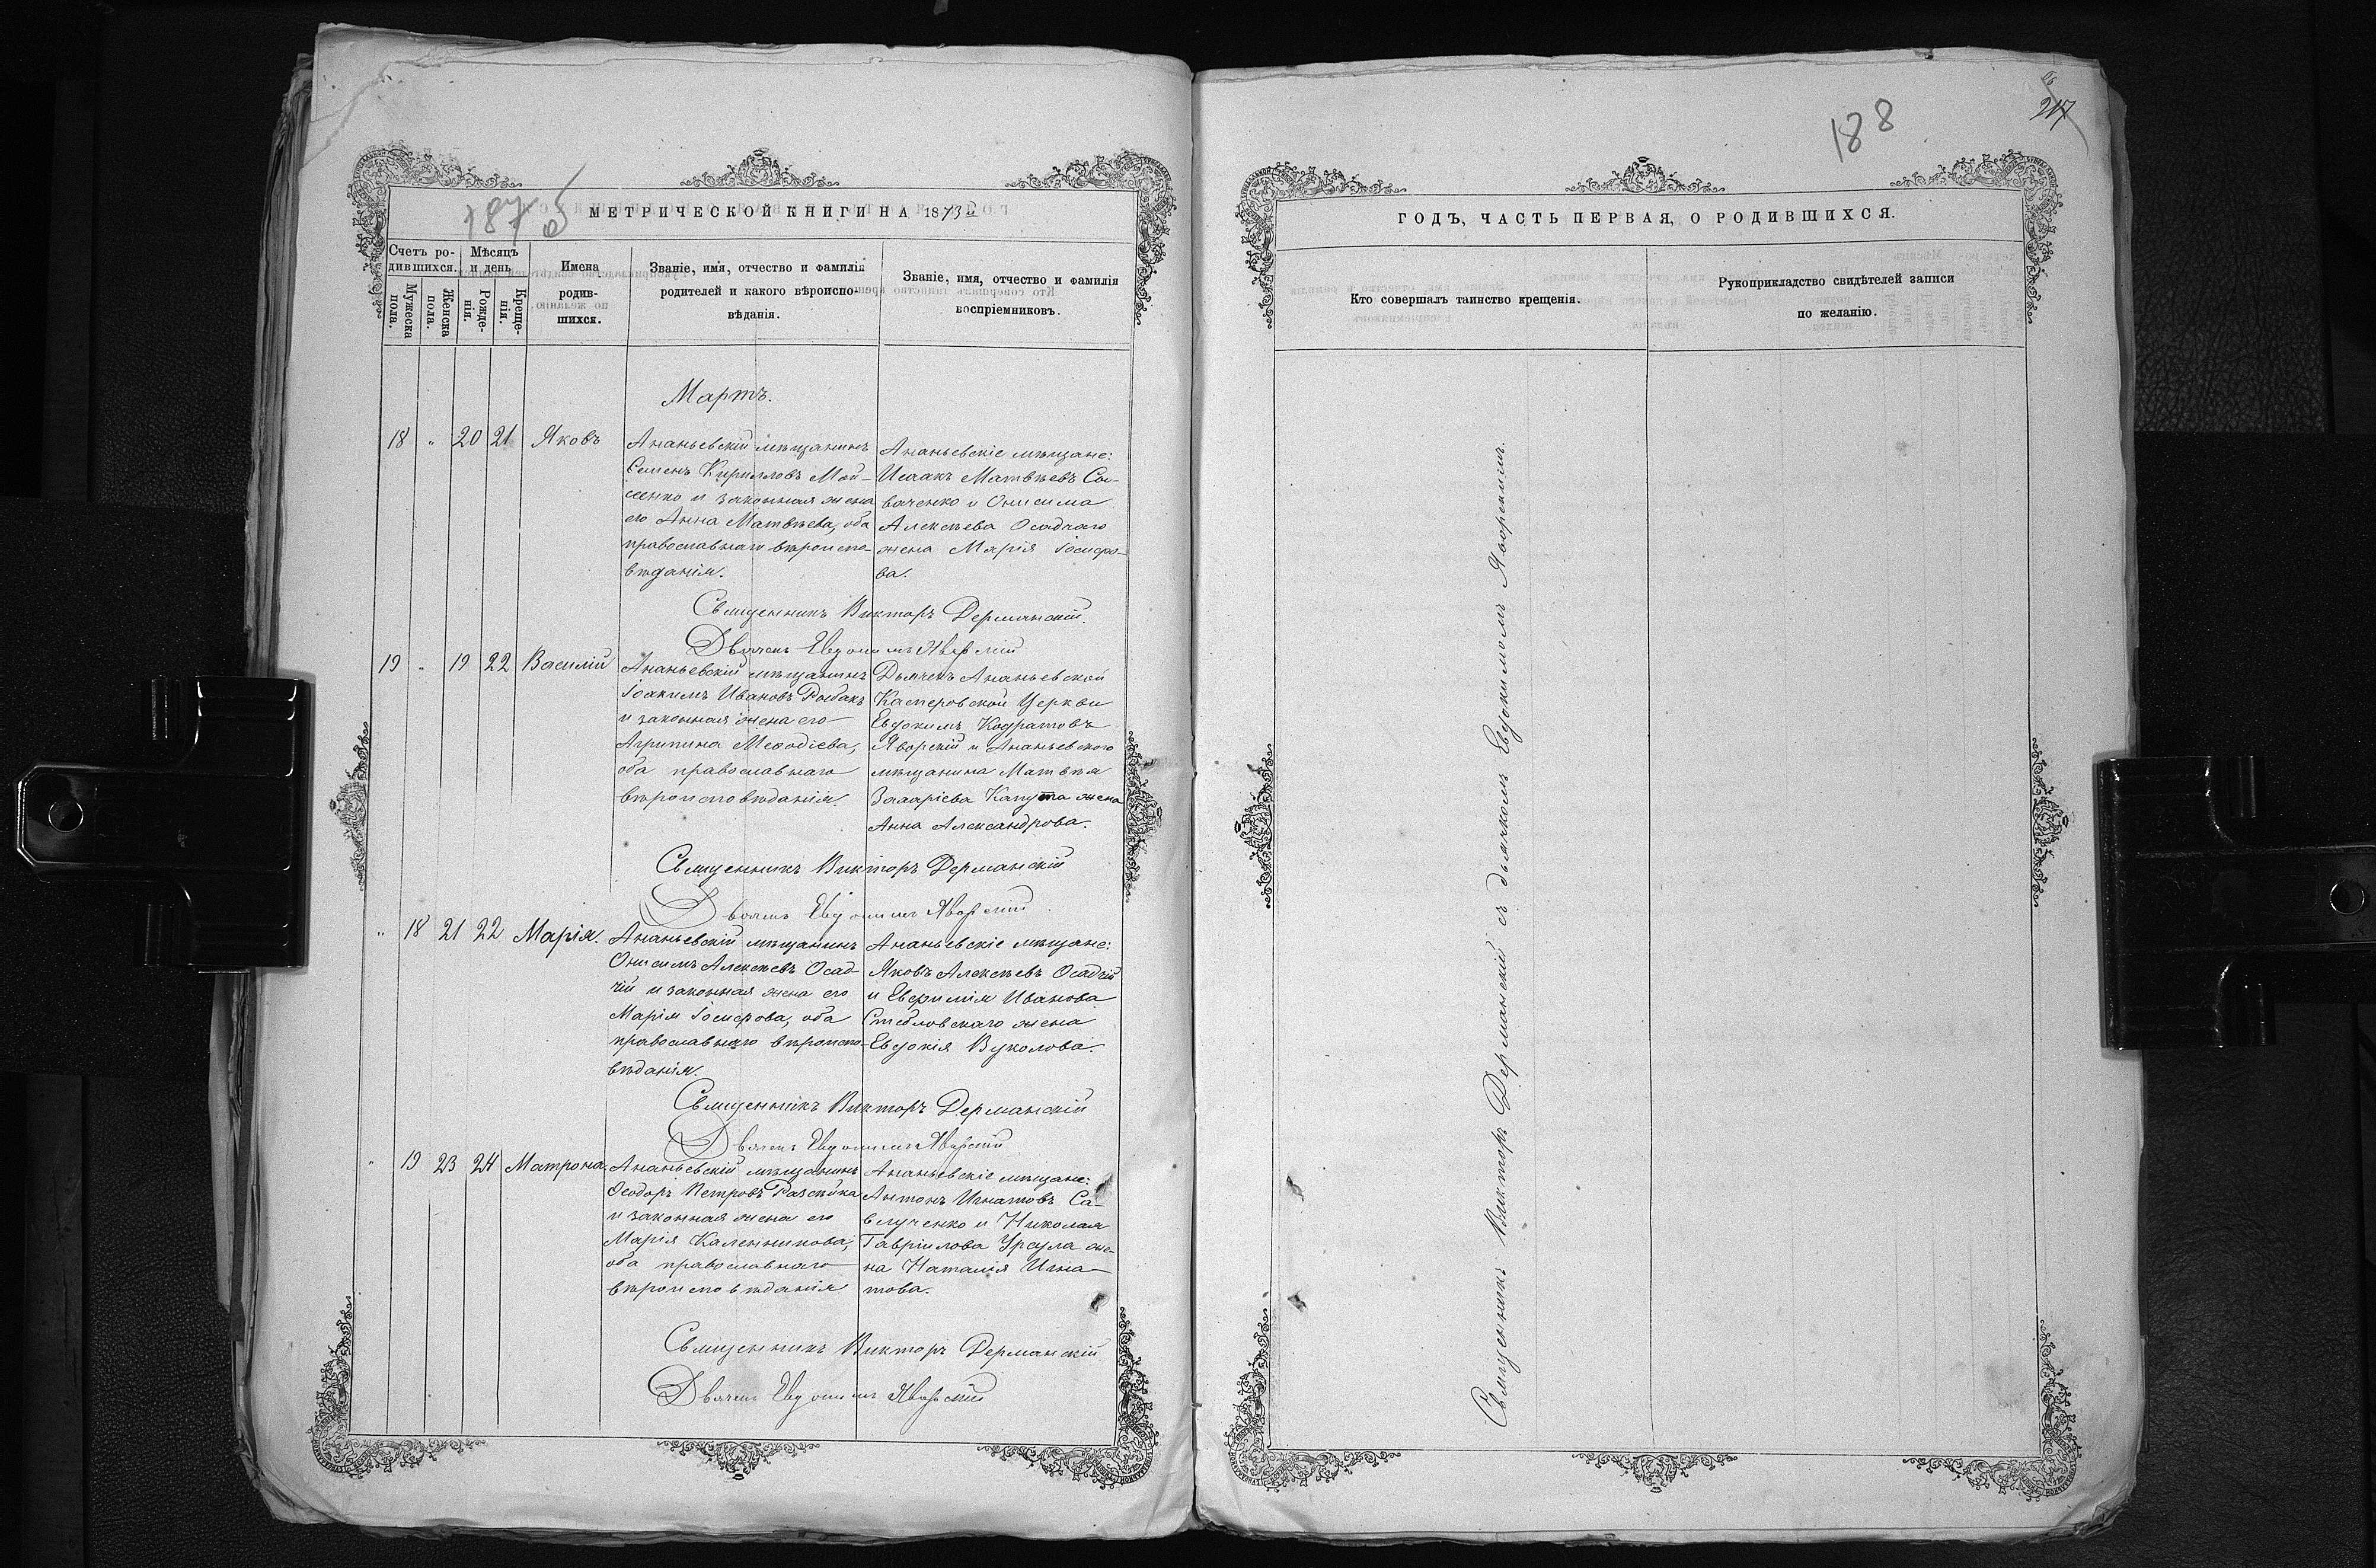 1873
МЕТРИЧЕСКОЙ КНИГИ НА 1873 й
Счетъ ро-
дившихся.
Мужеска
пола.
Женска
пола.
Мѣсяцъ
и день
Рожде-
нія.
Креще-
нія.
Имена
родив-
шихся.
Званіе, имя, отчество и фамилія
родителей и какого вѣроиспо-
вѣданія.
Званіе, имя, отчество и фамилія
воспріемниковъ.
Мартъ.
18 „ 20 21 Яковъ
Ананьевскій мѣщанинъ
Семенъ Кирилловъ Мой-
сенко и законная жена
его Анна Матвѣева, оба
православнаго вѣроиспо-
вѣданія.
Ананьевскіе мѣщане:
Исаакъ Матвѣевъ
и Онисима
Алексѣева Осадчаго
жена Марія Іосифо-
ва.
Священникъ Викторъ Дерманскій.
Дьячекъ Евдокимъ Яворскій
19 „ 19 22 Василій
Ананьевскій мѣщанинъ
Іоакимъ Ивановъ Рыбакъ
и законная жена его
Агрипина Меѳодіева,
оба православнаго
вѣроисповѣданія.
Дьячекъ Ананьевской
Касперовской Церкви
Евдокимъ Кодратовъ
Яворскій и Ананьевскаго
мѣщанина Матвѣя
Захаріева Капуста жена
Анна Александрова.
Священникъ Викторъ Дерманскій
Дьячекъ Евдокимъ Яворскій
„ 18 21 22 Марія.
Ананьевскій мѣщанинъ
Онисимъ Алексѣевъ Осад-
чій и законная жена его
Марія Іосифова, оба
православнаго вѣроиспо-
вѣданія.
Ананьевскіе мѣщане:
Яковъ Алексѣевъ Осадчій
и Евфимія Иванова
Стебловскаго жена
Евдокія Вуколова.
Священникъ Викторъ Дерманскій
Дьячекъ Евдокимъ Яворскій
„ 19 23 24 Матрона.
Ананьевскій мѣщанинъ
Ѳеодоръ Петровъ
и законная жена его
Марія Каленникова,
оба православнаго
вѣроисповѣданія
Ананьевскіе мѣщане:
Антонъ Игнатовъ Са-
влученко и Николая
Гавріилова Урсула же-
на Наталія Игна-
това.
Священникъ Викторъ Дерманскій
Дьячекъ Евдокимъ Яворскій
188
217
ГОДЪ, ЧАСТЬ ПЕРВАЯ, О РОДИВШИХСЯ.
Кто совершалъ таинство крещенія.
Рукоприкладство свидѣтелей записи
по желанію.
Священникъ Викторъ Дерманскій съ дьячкомъ Евдокимомъ Яворскимъ.